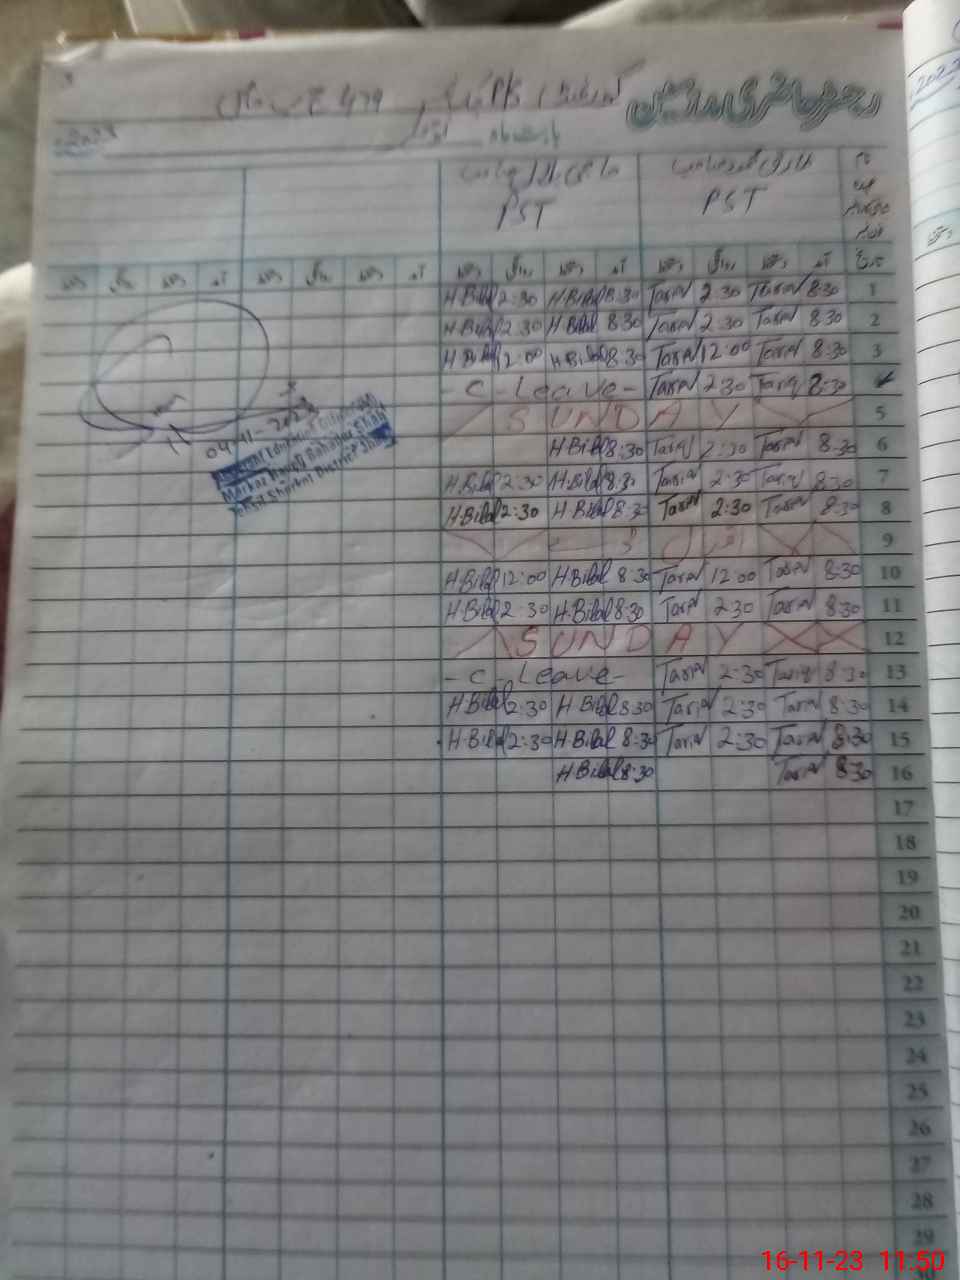 رجسٹر حاضری مدرسین گورنمنٹ PS 479 ج ب
بابت ماہ 2023
PST PST
آمد دستخط روانگی دستخط آمد دستخط روانگی دستخط آمد دستخط روانگی دستخط آمد دستخط روانگی دستخط
1 8:30 Tariq 2:30 Tariq 8:30 H.Bilal 2:30 H.Bilal
2 8:30 Tariq 2:30 Tariq 8:30 H.Bilal 2:30 H.Bilal
3 8:30 Tariq 12:00 Tariq 8:30 H.Bilal 12:00 H.Bilal
8:30 Tariq 2:30 Tariq - C - Leave -
5 SUNDAY
6 8:30 Tariq 2:30 Tariq 8:30 H.Bilal
7 8:30 Tariq 2:30 Tariq 8:30 H.Bilal 2:30 H.Bilal
8 8:30 Tariq 2:30 Tariq 8:30 H.Bilal 2:30 H.Bilal
9 اقبال ڈے
10 8:30 Tariq 12:00 Tariq 8:30 H.Bilal 12:00 H.Bilal
11 8:30 Tariq 2:30 Tariq 8:30 H.Bilal 2:30 H.Bilal
12 SUNDAY
13 8:30 Tariq 2:30 Tariq - C - Leave -
14 8:30 Tariq 2:30 Tariq 8:30 H.Bilal 2:30 H.Bilal
15 8:30 Tariq 2:30 Tariq 8:30 H.Bilal 2:30 H.Bilal
16 8:30 Tariq 8:30 H.Bilal
17
18
19
20
21
22
23
24
25
26
27
28
29
04-11-2023
Markaz Haveli Bahadur Shah
Tehsil Shorkot District Jhang
2023
16-11-23 11:50